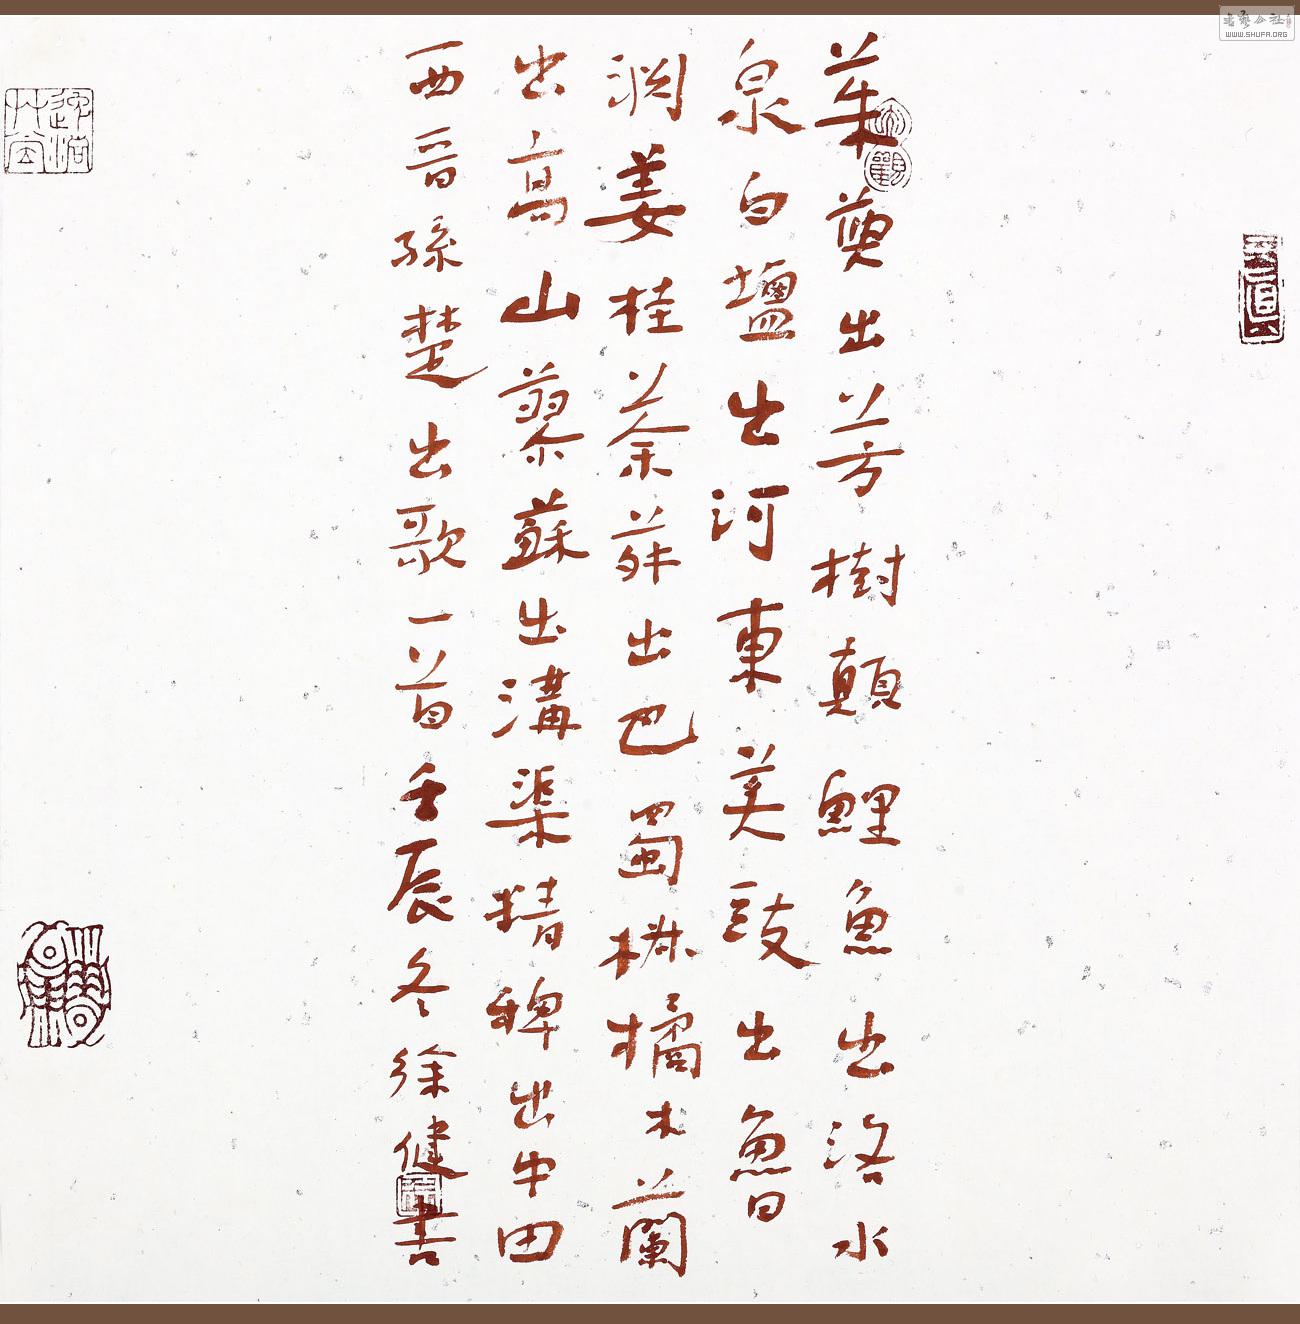 茱萸出芳樹顛鯉魚出洛水
泉白塩出河東美豉出魯
渕姜桂茶荈出巴蜀椒橘木蘭
出高山蓼蘇出溝渠精稗出中田
西晋孫楚出歌一首壬辰冬徐健書
書藝公社
WWW.SHUFA.ORG